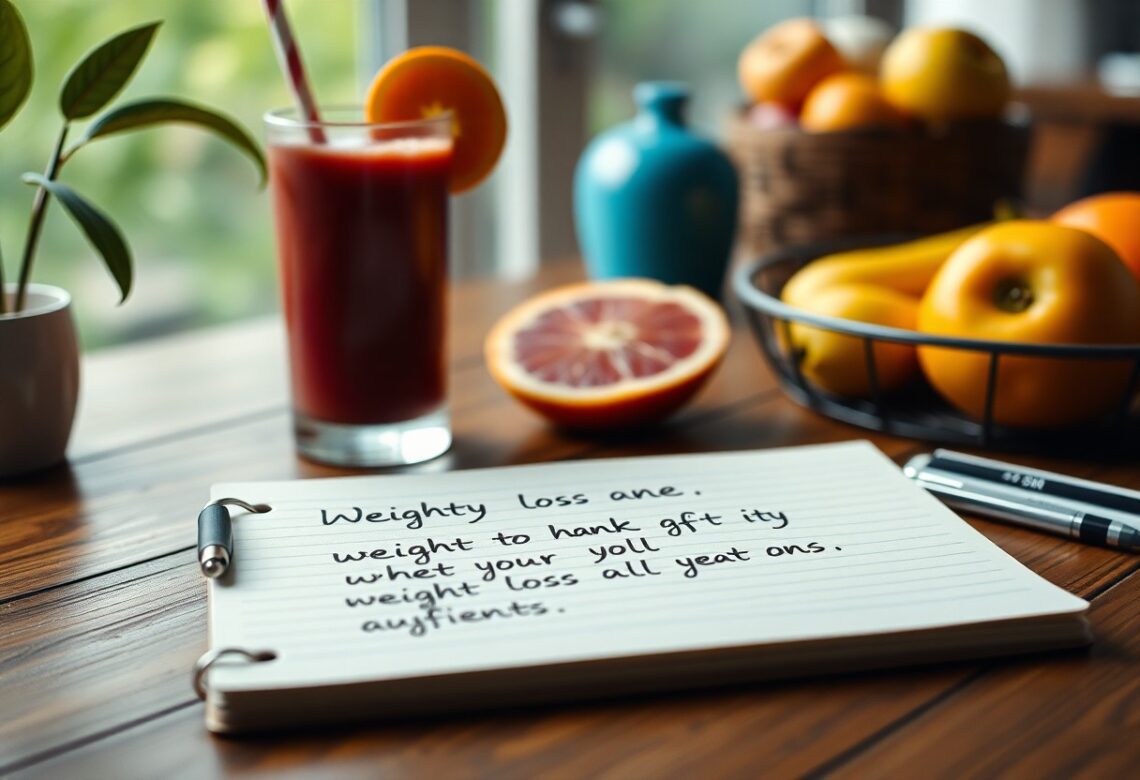 Weighty loss ane.
weight to hank gft ity
whet your yoll
weight loss all yeat ons.
auyfients.